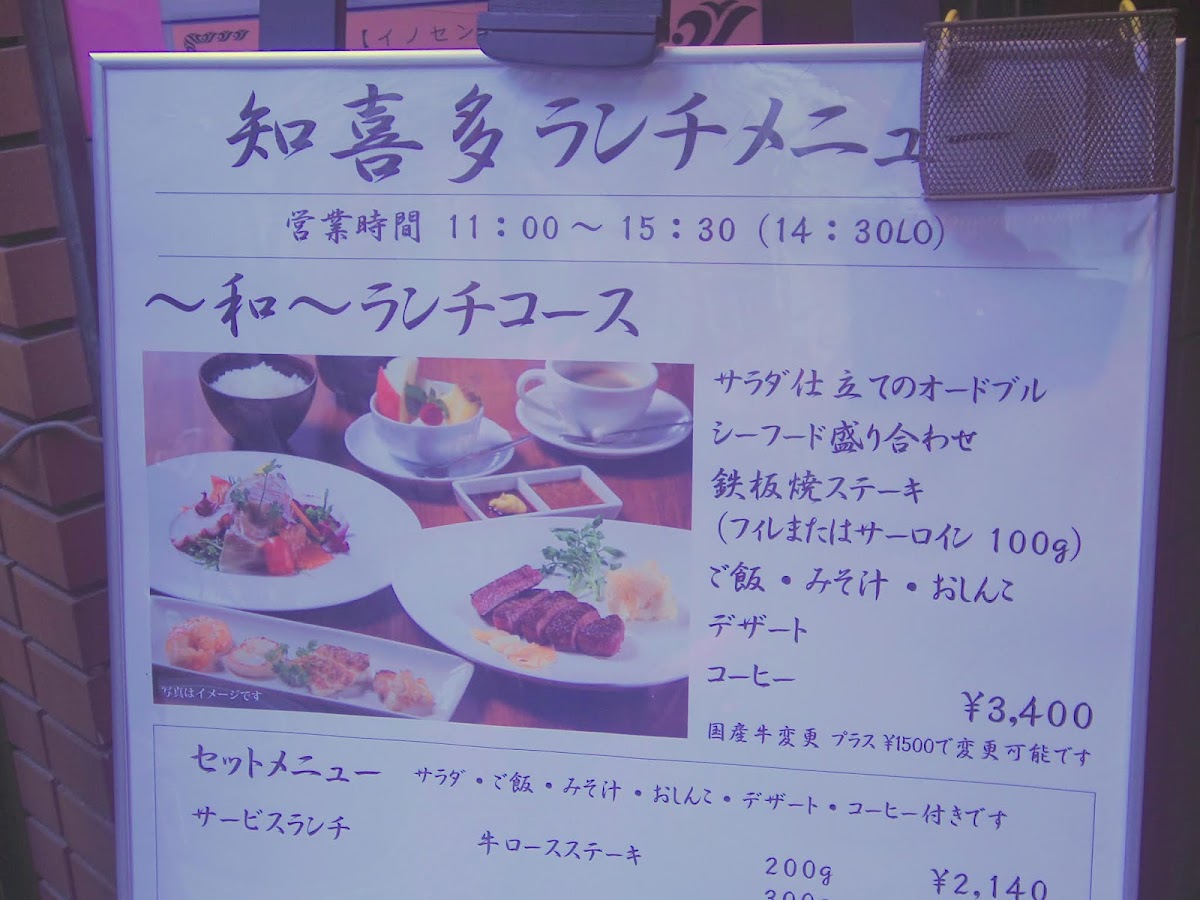 【イノセン
知喜多ランチメニュ
営業時間 11:00〜15:30 (14:30LO)
〜和〜ランチコース
サラダ仕立てのオードブル
シーフード盛り合わせ
鉄板焼ステーキ
(フィレまたはサーロイン 100g)
ご飯・みそ汁・おしんこ
デザート
コーヒー
¥3,400
国産牛変更 プラス¥1500で変更可能です
写真はイメージです
セットメニュー サラダ・ご飯・みそ汁・おしんこ・デザート・コーヒー付きです
サービスランチ 牛ロースステーキ 200g ¥2,140